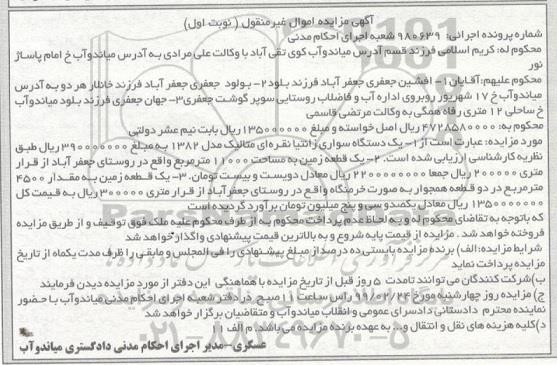 آگهی مزایده اموال غیرمنقول ( نوبت اول)
شماره پرونده اجرائی: ۹۸۰۶۳۹ شعبه اجرای احکام مدنی
محکوم له: کریم اسلامی فرزند قسم آدرس میاندوآب کوی تقی آباد با وکالت علی مرادی به آدرس میاندوآب خ امام پاساژ نور
محکوم علیهم: آقایان ۱- افشین جعفری جعفر آباد فرزند بلود ۲- بولود جعفری جعفر آباد فرزند خانلار هر دو به آدرس
میاندوآب خ ۱۷ شهریور روبروی اداره آب و فاضلاب روستایی سوپر گوشت جعفری ۳- جهان جعفری فرزند بلود میاندوآب
خ ساحلی ۱۲ متری رفاه همگی به وکالت مرتضی قاسمی
محکوم به: ۴۷۲۸۵۸۰۰۰۰ ریال اصل خواسته و مبلغ ۱۳۵۰۰۰۰۰۰ ریال بابت نیم عشر دولتی
مورد مزایده: عبارت است از ۱- یک دستگاه سواری زانتیا نقره ای متالیک مدل ۱۳۸۲ به مبلغ ۳۹۰۰۰۰۰۰۰ ریال طبق
نظریه کارشناسی ارزیابی شده است. ۲- یک قطعه زمین به مساحت ۱۱۰۰۰ مترمربع واقع در روستای جعفر آباد از قرار
متری ۲۰۰۰۰۰ ریال جمعا ۲۲۰۰۰۰۰۰۰۰ ریال معادل دویست و بیست تومان. ۳- یک قطعه زمین به مقدار ۴۵۰۰
مترمربع در دو قطعه همجوار به صورت خرمنگاه واقع در روستای جعفرآباد از قرار متری ۳۰۰۰۰۰ ریال به قیمت کل
۱۳۵۰۰۰۰۰۰۰ ریال معادل یکصدوسی و پنج میلیون تومان برآورد گردیده است
که باتوجه به تقاضای محکوم له و به لحاظ عدم پرداخت محکوم به از طرف محکوم علیه ملک فوق توقیف و از طریق مزایده
فروخته خواهد شد. مزایده از قیمت پایه شروع و به بالاترین قیمت پیشنهادی واگذار خواهد شد
شرایط مزایده: الف) برنده مزایده بایستی ده درصد از مبلغ پیشنهادی را فی المجلس و مابقی را ظرف مدت یکماه از تاریخ
مزایده پرداخت نماید
ب) شرکت کنندگان می توانند تا مدت ۵ روز قبل از تاریخ مزایده با هماهنگی این دفتر از مورد مزایده دیدن فرمایند
ج) مزایده روز چهارشنبه مورخ ۹۹/۰۲/۲۴ راس ساعت ۱۱ صبح در دفتر شعبه اجرای احکام مدنی میاندوآب با حضور
نماینده محترم دادستانی دادسرای عمومی و انقلاب میاندوآب و متقاضیان برگزار خواهد شد
د) کلیه هزینه های نقل و انتقال و... به عهده برنده مزایده می باشد/ م الف ۱
عسگری - مدیر اجرای احکام مدنی دادگستری میاندوآب
۰۲۱-۸۸۳۴۹۶۷۰-۵